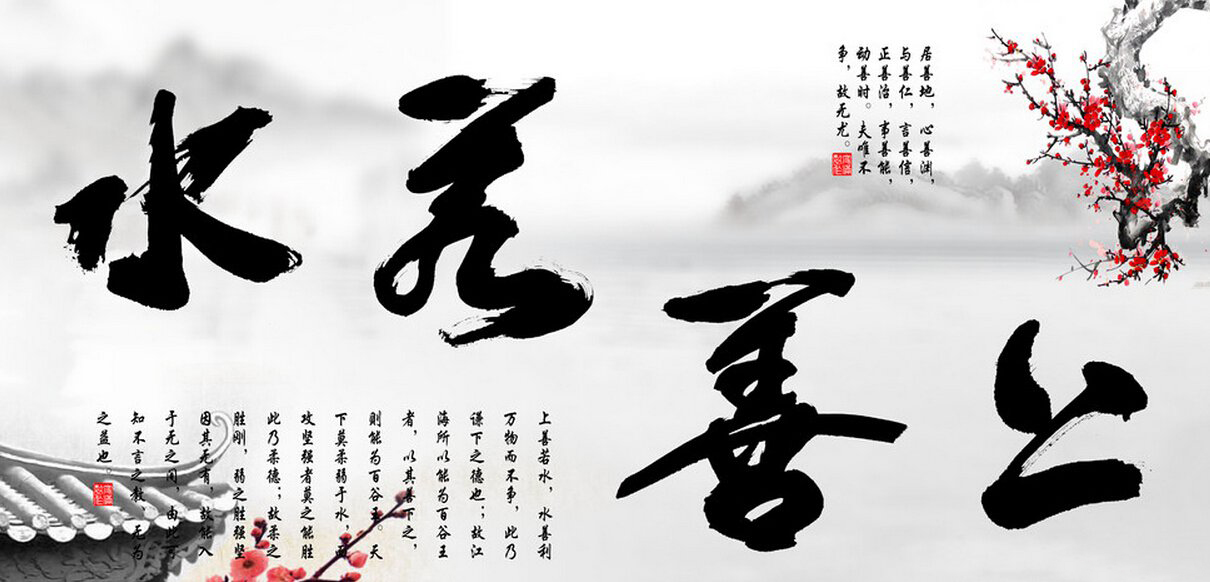 上善若水
居善地，心善渊，
与善仁，言善信，
正善治，事善能，
动善时。夫唯不
争，故无尤。
上善若水，水善利
万物而不争，此乃
谦下之德也；故江
海所以能为百谷王
者，以其善下之，
则能为百谷王。天
下莫柔弱于水，而
攻坚强者莫之能胜
此乃柔德；故柔之
胜刚，弱之胜强坚
因其无有，故能入
于无之间，由此可
知不言之教、无为
之益也。